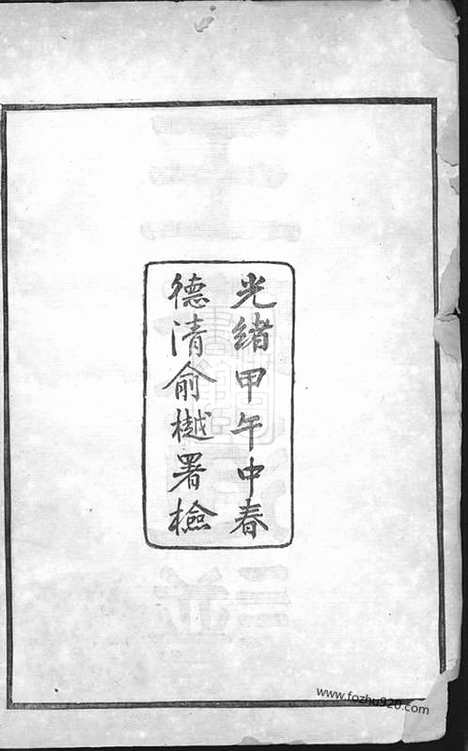 光緒甲午中春
德清俞樾署檢
www.fozhu920.com